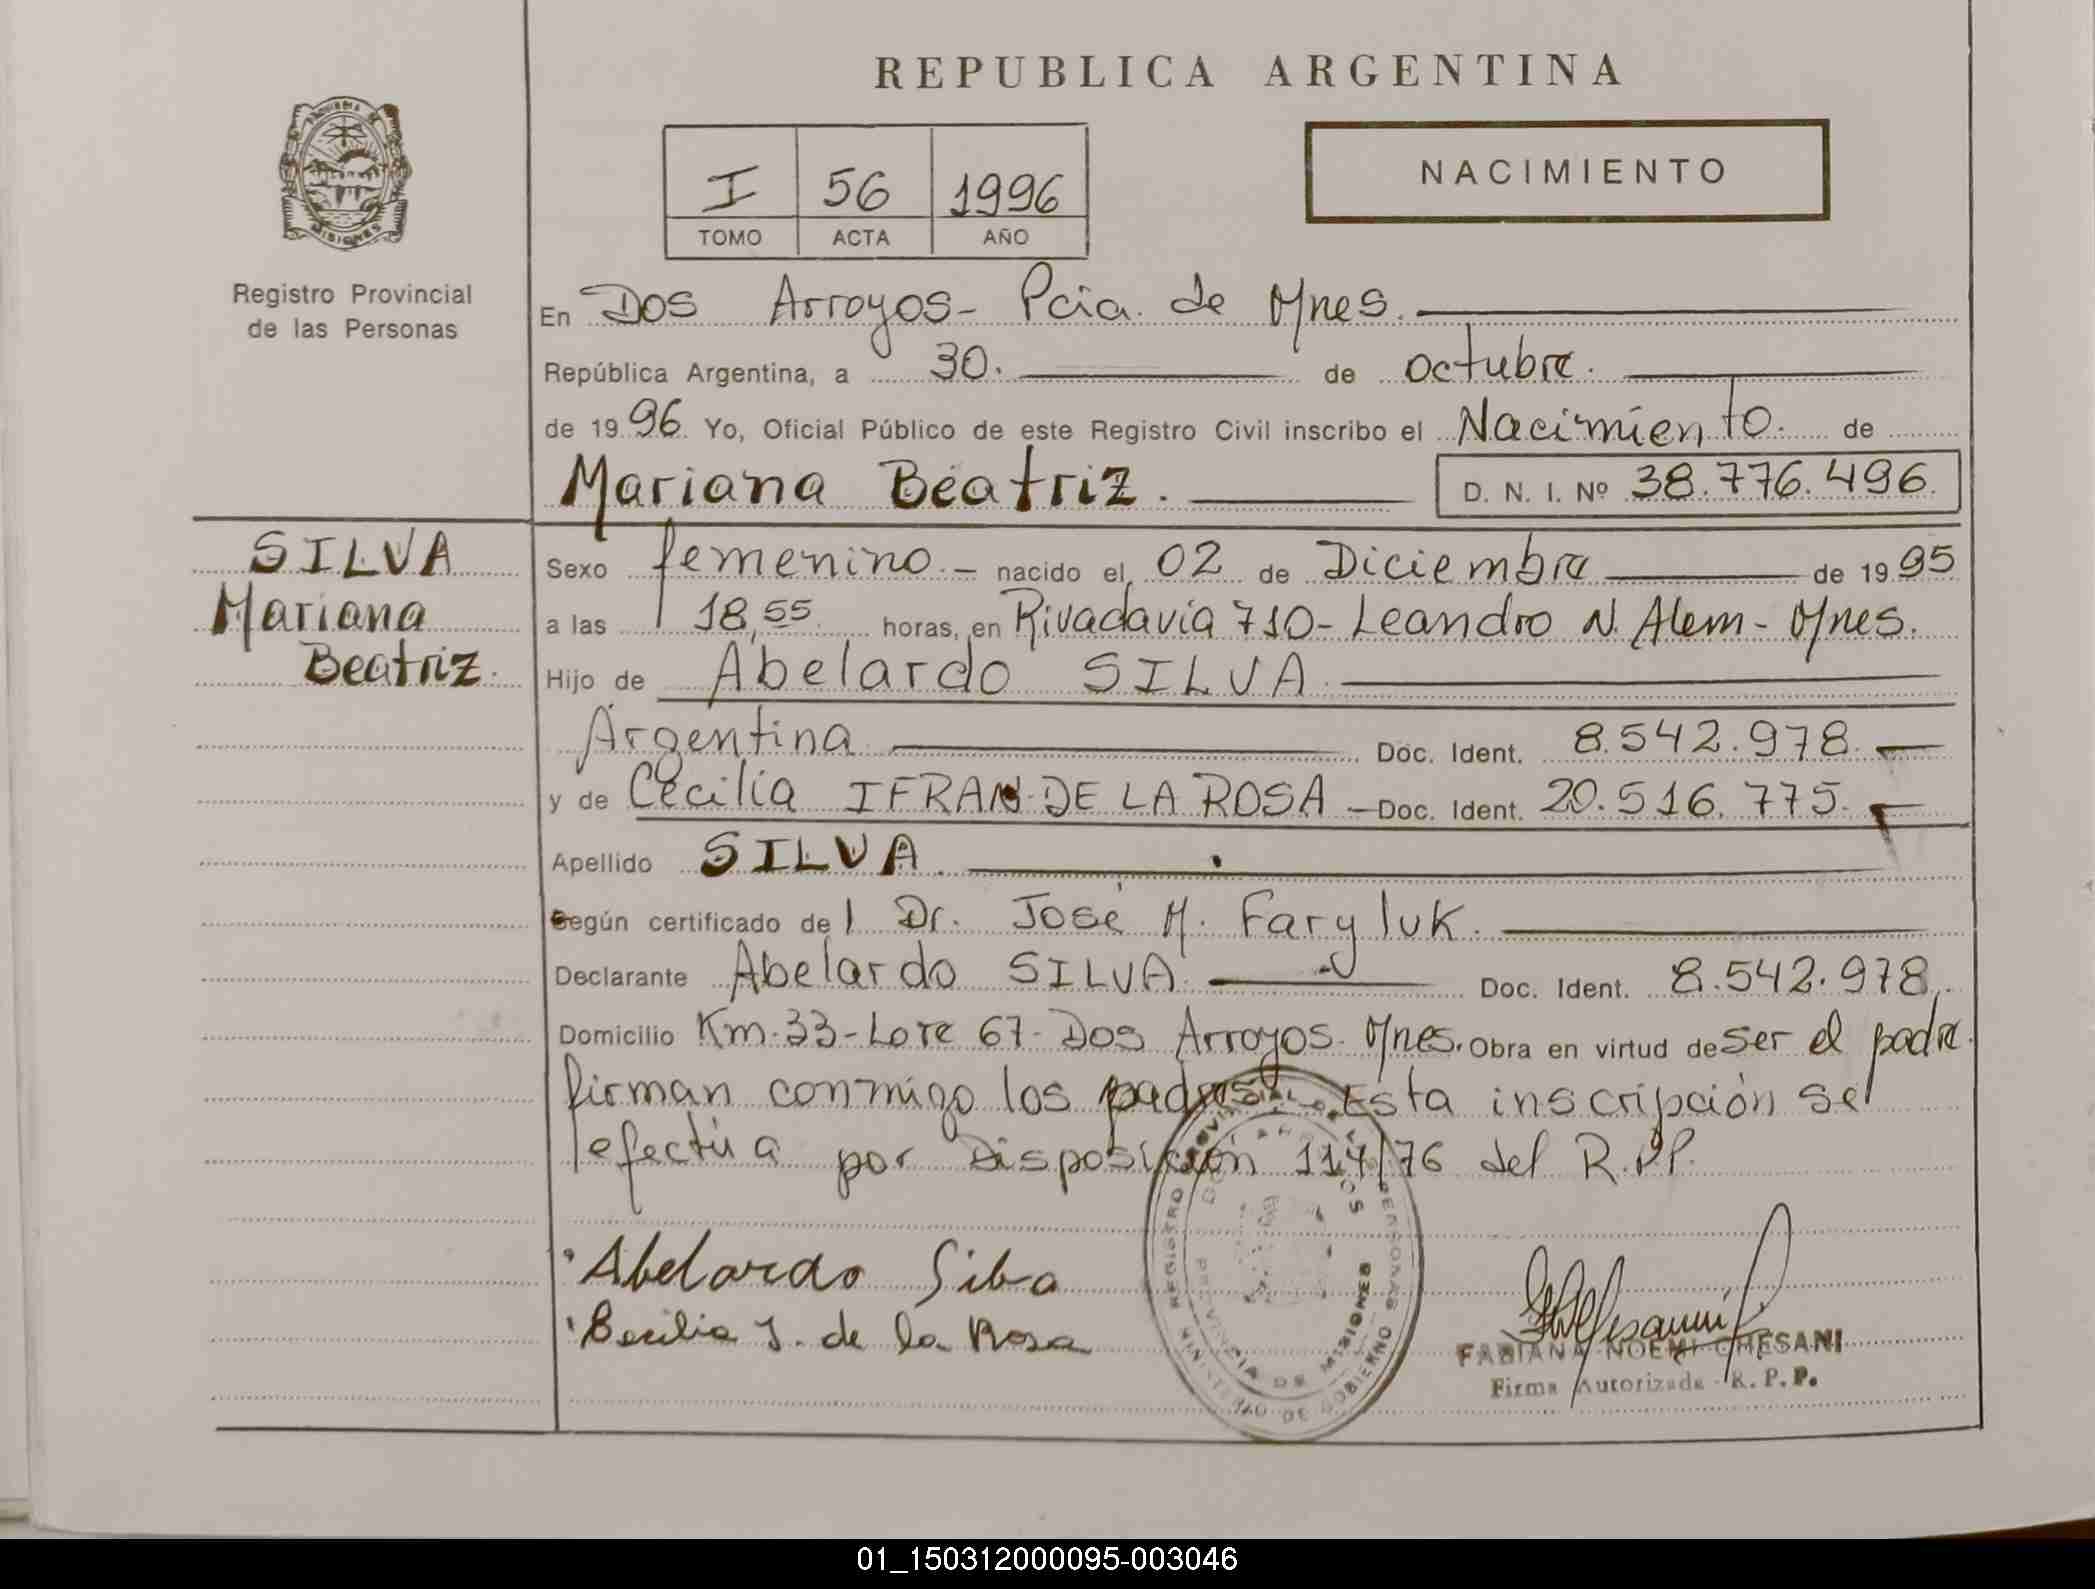 REPUBLICA ARGENTINA
PROVINCIA DE
MISIONES
Registro Provincial
de las Personas
I 56 1996
TOMO ACTA AÑO
NACIMIENTO
En Dos Arroyos- Pcia. de Mnes.
República Argentina, a 30. de octubre.
de 1996. Yo, Oficial Público de este Registro Civil inscribo el Nacimiento. de
Mariana Beatriz. D. N. I. Nº 38.776.496.
SILVA
Mariana
Beatriz.
Sexo femenino.- nacido el 02 de Diciembre de 1995
a las 18,55 horas, en Rivadavia 710- Leandro N. Alem- Mnes.
Hijo de Abelardo SILVA.
Argentina Doc. Ident. 8.542.978.
y de Cecilia IFRAN DE LA ROSA - Doc. Ident. 20.516.775.
Apellido SILVA.
Según certificado del Dr. José M. Faryluk.
Declarante Abelardo SILVA. Doc. Ident. 8.542.978,
Domicilio Km.33-Lote 67- Dos Arroyos- Mnes. Obra en virtud de ser el padre
firman conmigo los padres. Esta inscripción se
efectúa por Disposición 117/76 del R.P.P.
Abelardo Silva
Cecilia I. de la Rosa
REGISTRO PROVINCIAL DE LAS PERSONAS
MINISTERIO DE GOBIERNO
DOS ARROYOS
PROVINCIA DE MISIONES
FABIANA NOEMI CHESANI
Firma Autorizada - R. P. P.
01_150312000095-003046